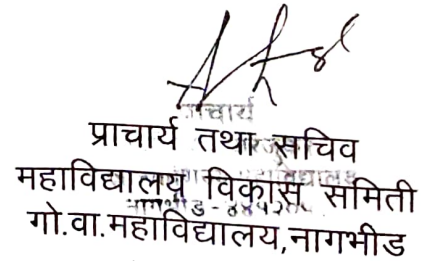 प्राचार्य
प्राचार्य तथा सचिव
महाविद्यालय विकास समिती
गो.वा.महाविद्यालय,नागभीड